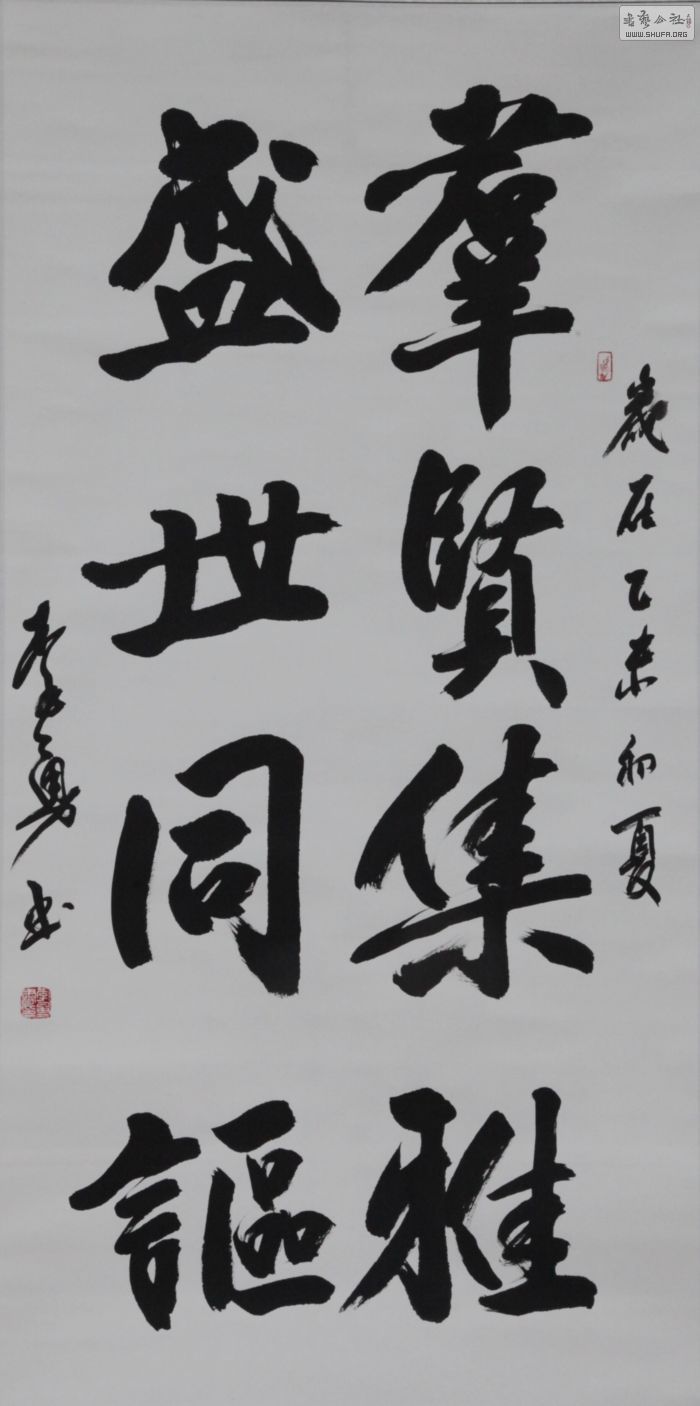 歲在乙未初夏
羣賢集雅
盛世同謳
李勇書
書藝公社
WWW.SHUFA.ORG